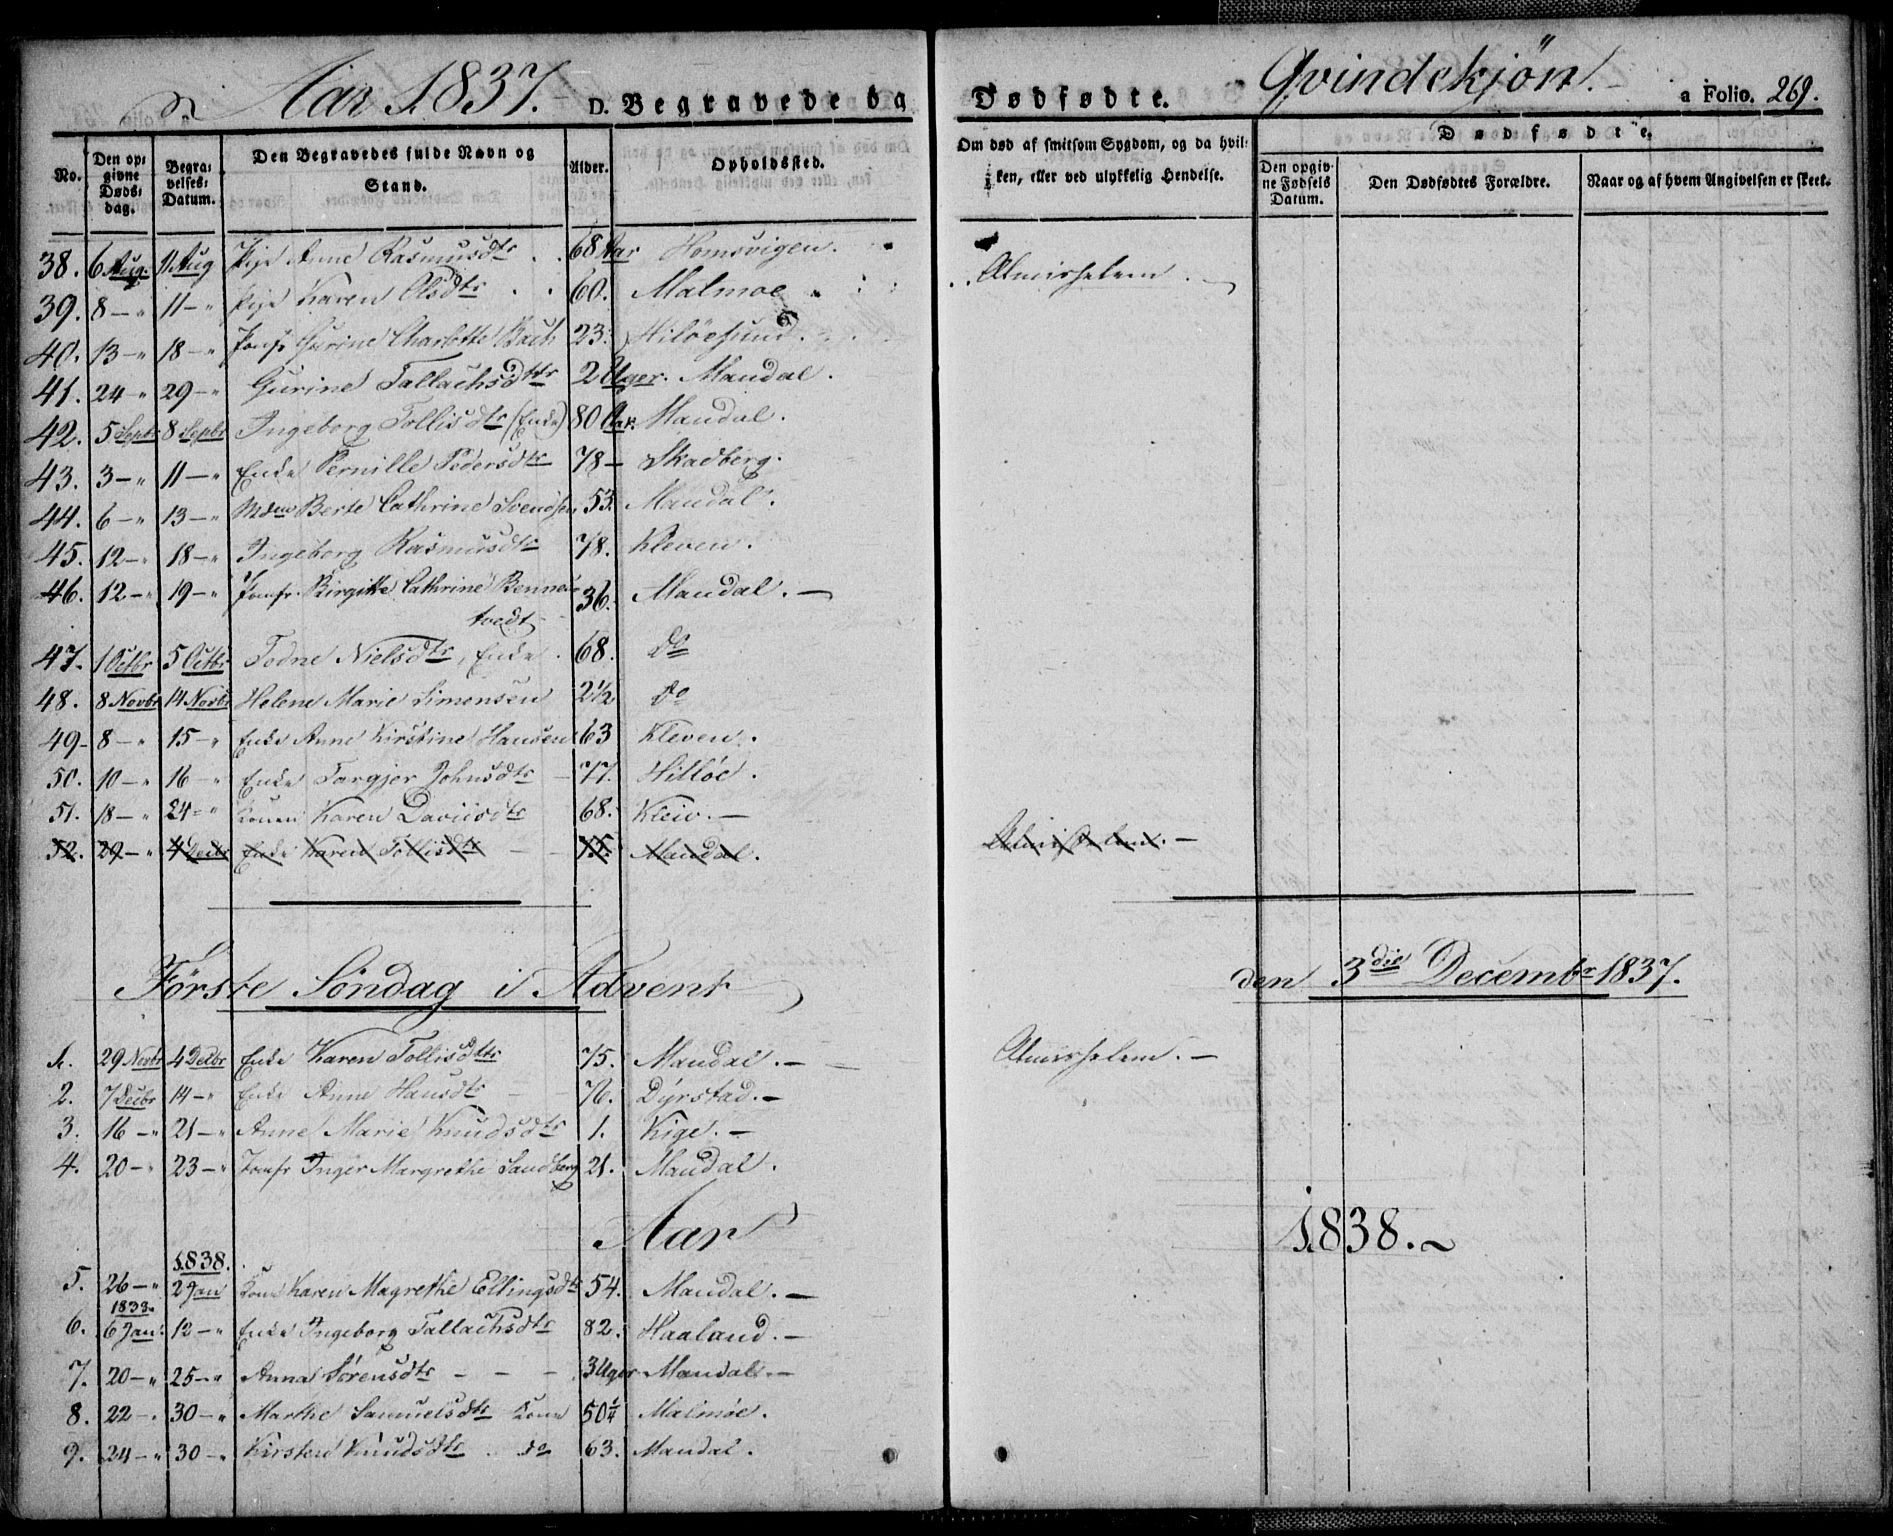 Aar 1837. D. Begravede og Dødfødte. Qvindekjøn. a Folio. 269.
No. Den opgivne Dødsdag. Begravelses-Datum. Den Begravedes fulde Navn og Stand. Alder. Opholdssted. Om død af smitsom Sygdom, og da hvilken, eller ved ulykkelig Hendelse. Dødfødte. Den opgivne Fødsels Datum. Den Dødfødtes Forældre. Naar og af hvem Angivelsen er skeet.
38. 6 Aug. 11 Aug Pige Anne Rasmusdtr 68 Aar Homsvigen.
39. 8 — " 11 — " Pige Karen Olsdtr 60. Malmøe Almisselem.
40. 13 — " 18 — " Jomf. Gurine Charlotte Bach 23.
41. 24 — " 29 — " Gurine Tallachsdtr 2 Uger. Mandal.
42. 5 Septr 8 Septbr Ingeborg Tollisdtr (Enke) 80 Aar. Mandal.
43. 3 — " 11 — " Enke Pernille Pedersdtr 78 — Skadberg.
44. 6 — " 13 — " Mdme Berte Cathrine Svendsen 53. Mandal.
45. 12 — " 18 — " Ingeborg Rasmusdtr 78. Kleven.
46. 12 — " 19 — " Jomfr. Birgitte Cathrine Bennes- 36. Mandal. —
tvedt
47. 1 Octbr 5 Octbr Todne Nielsdtr, Enke 68. do
48. 8 Novbr 14 Novbr Helene Marie Simonsen 2½ do
49 - 8 — " 15 — " Enke Anne Kirstine Hansen 63 Kleven.
50. 10 — " 16 — " Enke Torgjer Johnsdtr 77. Hilløe.
51. 18 — " 24 — " Konen Karen Davidsdtr 68. Kleiv. —
52. 29 — " 4 Decbr Enke Karen Tollisdtr 75. Mandal. Almisselem. —
Første Søndag i Advent den 3die Decembr 1837.
1. 29 Novbr 4 Decbr Enke Karen Tollisdtr 75. Mandal. — Almisselem. —
2. 7 Decbr 14 — " Enke Anne Hansdtr 76. Dyrstad. —
3. 16 — " 21 — " Anne Marie Knudsdtr 1. Kige. —
4. 20 — " 23 — " Jomfr Inger Margrethe Sandberg 21. Mandal.
Aar 1838. —
1838.
5. 26 — " 2 Jan Kone Karen Magrethe Ellingsdtr 54. Mandal. —
1838.
6. 6 Jan. 12 — " Enke Ingeborg Tallachsdtr 82. Haaland. —
7. 20 — " 25 — " Anna Sørensdtr — — — 3 Uger Mandal. —
8. 22 — . 30 — " Marthe Samuelsdtr Kone 50¼ Malmøe.
9. 24 — " 30 — " Kirsten Knudsdtr do 63. Mandal.